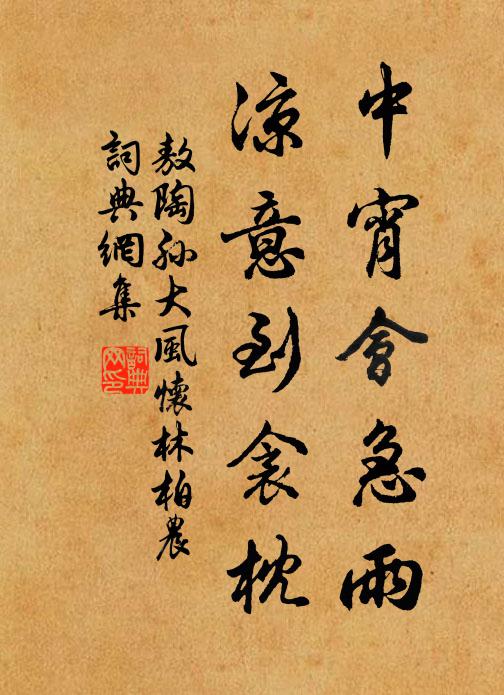 中宵會急雨
涼意到衾枕
敖陶孙大風懷林柏農
詞典網集
詞典網印